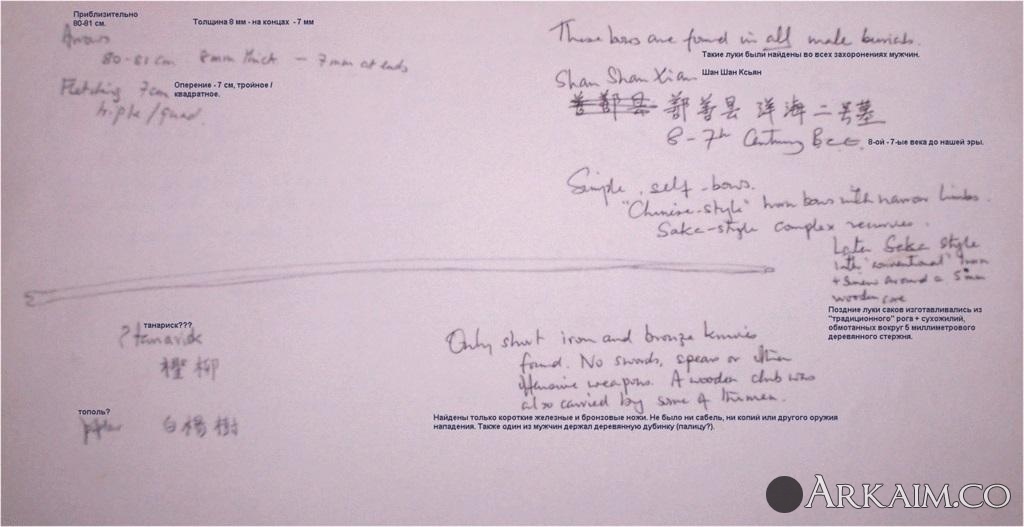 Приблизительно
80-81 см.
Толщина 8 мм - на концах - 7 мм
Arrows
80-81 cm 8mm thick - 7mm at ends
Оперение - 7 см, тройное /
квадратное.
Fletching 7cm
triple/quad.
These bows are found in all male burials.
Такие луки были найдены во всех захоронениях мужчин.
Shan Shan Xian
Шан Шан Ксьян
善鄯县 鄯善县 洋海二号墓
8-7th Century BCE.
8-ой - 7-ые века до нашей эры.
Simple self-bows.
"Chinese-style" horn bows with narrow limbs.
Saka-style complex recurves.
Later Saka style
with "conventional" horn
+ sinew around a 5mm
wooden core
Поздние луки саков изготавливались из
"традиционного" рога + сухожилий,
обмотанных вокруг 5 миллиметрового
деревянного стержня.
танариск???
? tamarisk
檉柳
тополь?
poplar 白楊樹
Only short iron and bronze knives
found. No swords, spears or other
offensive weapons. A wooden club was
also carried by some of the men.
Найдены только короткие железные и бронзовые ножи. Не было ни сабель, ни копий или другого оружия
нападения. Также один из мужчин держал деревянную дубинку (палицу?).
ARKAIM.CO